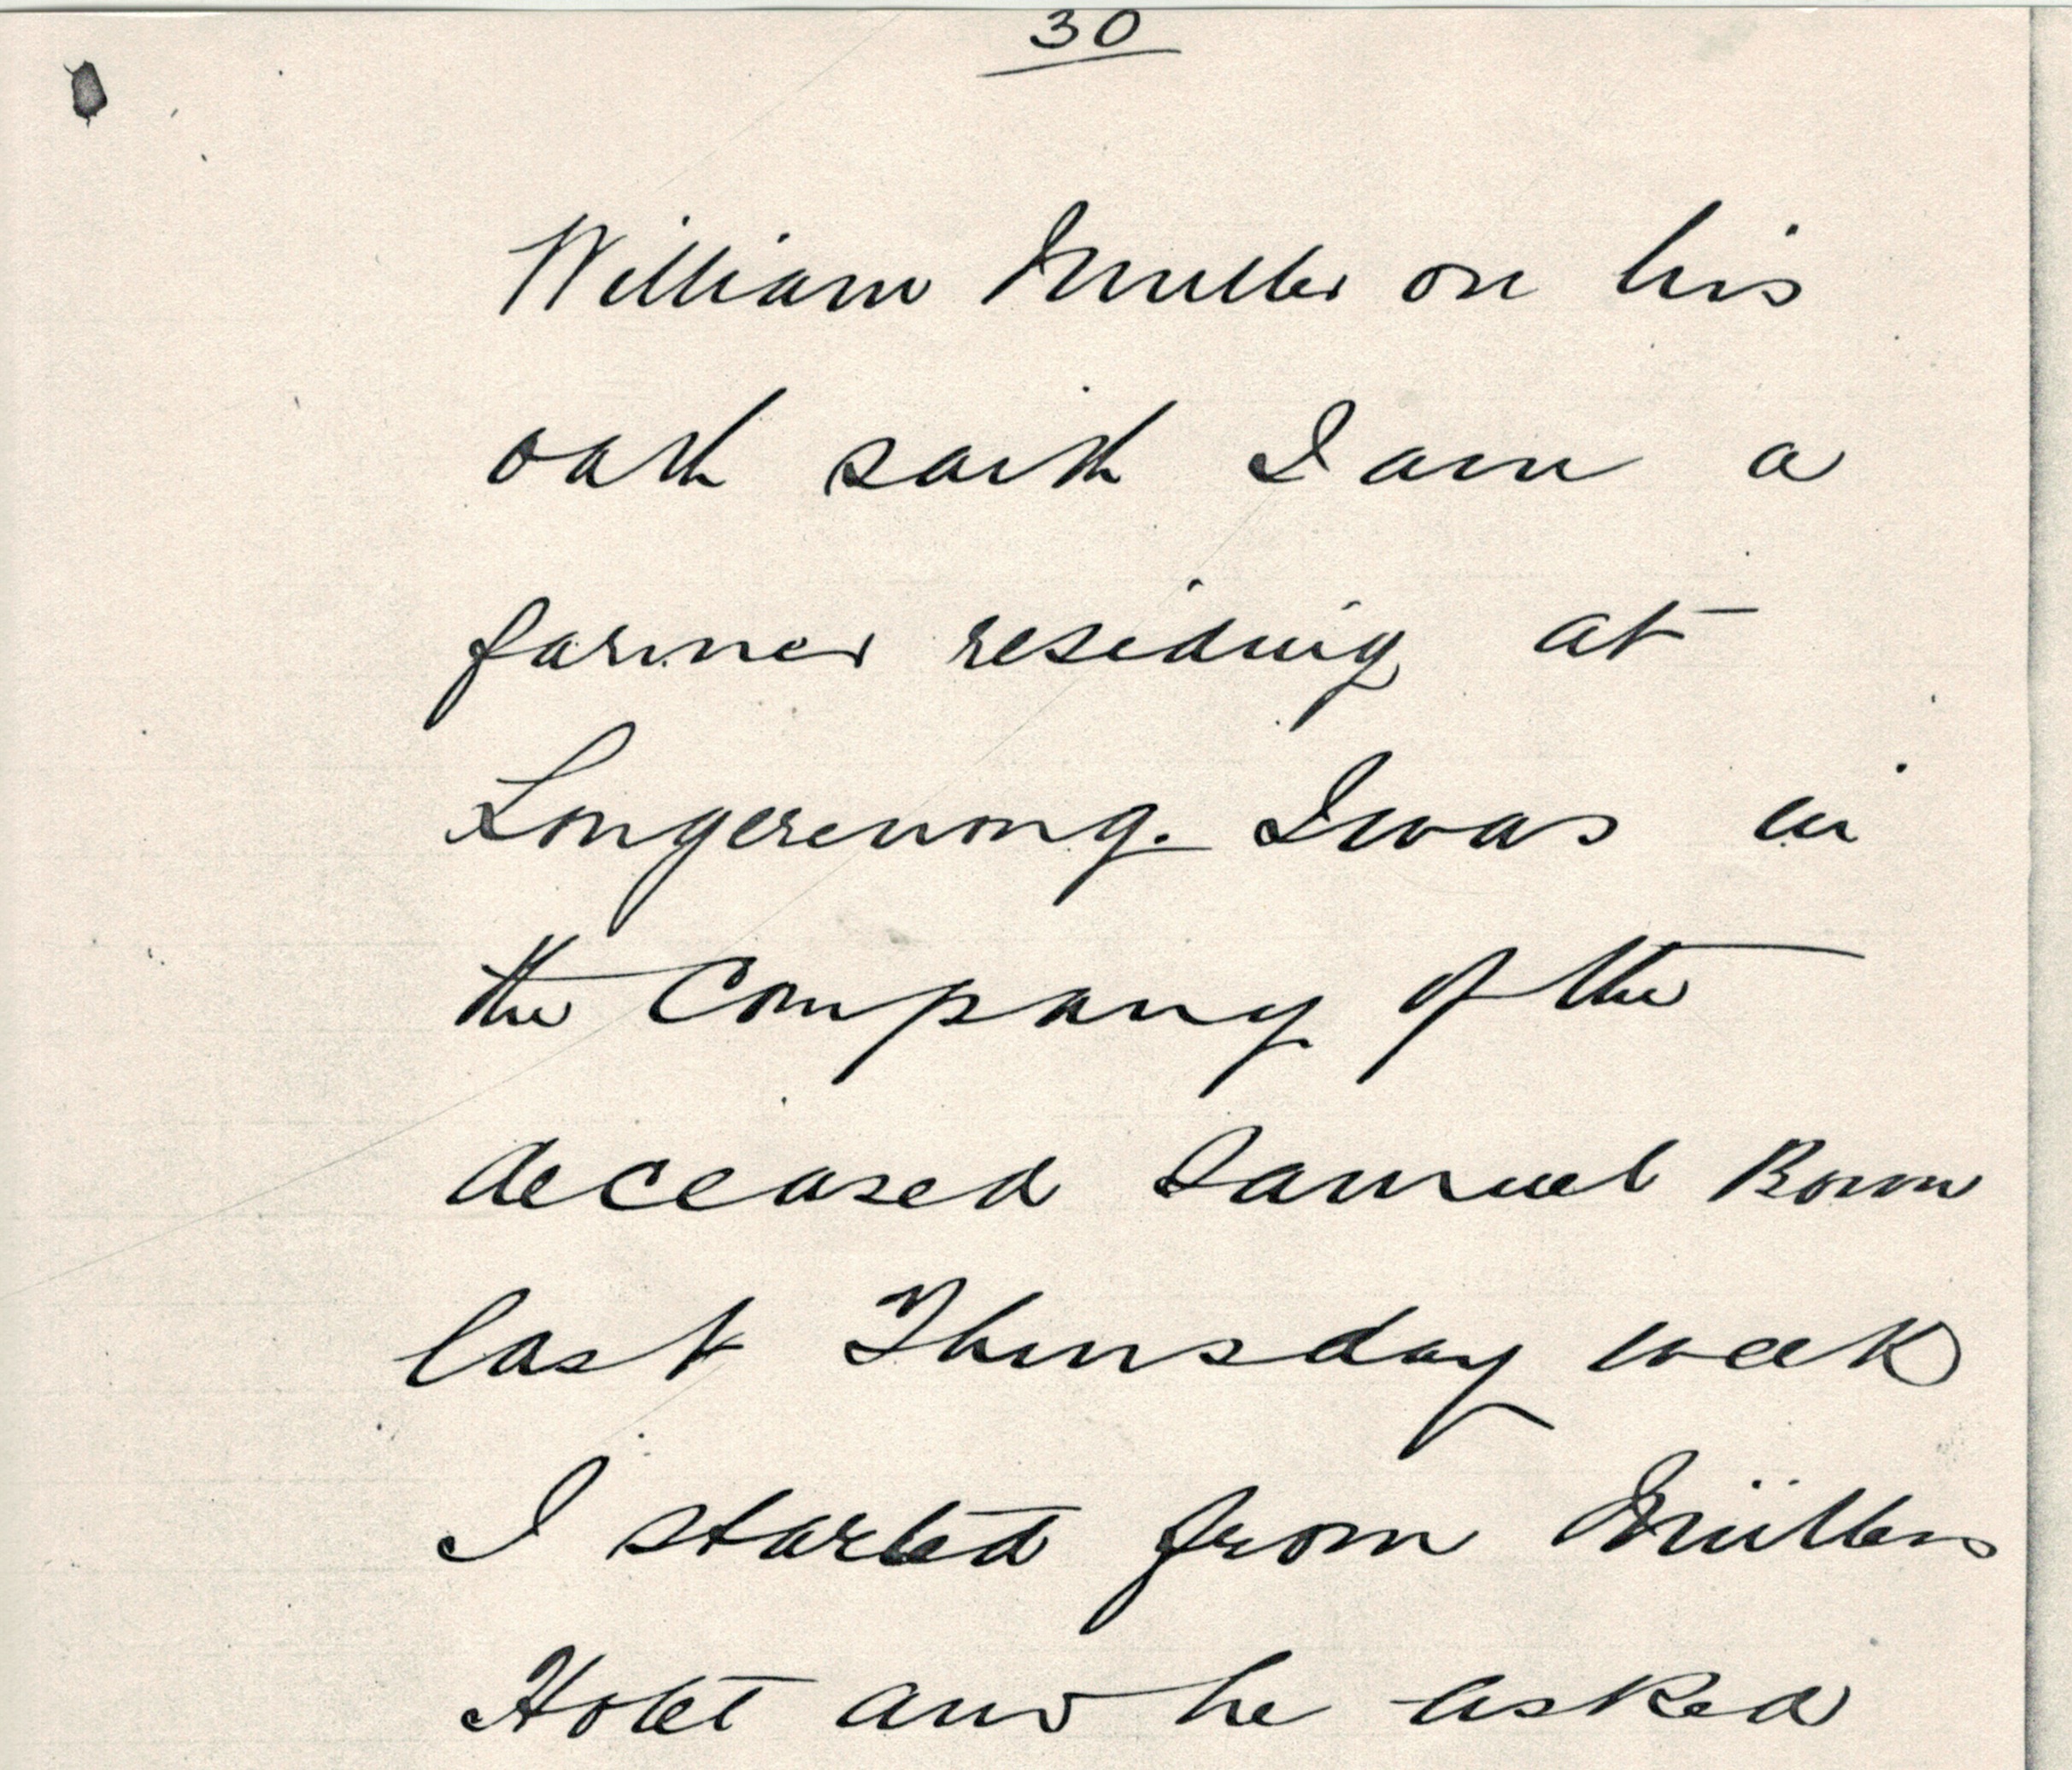 30
William Muller on his
oath saith I am a
farmer residing at
Longerenong. I was in
the Company of the
deceased Samuel Bown
last Thursday week
I started from Müllers
Hotel and he asked